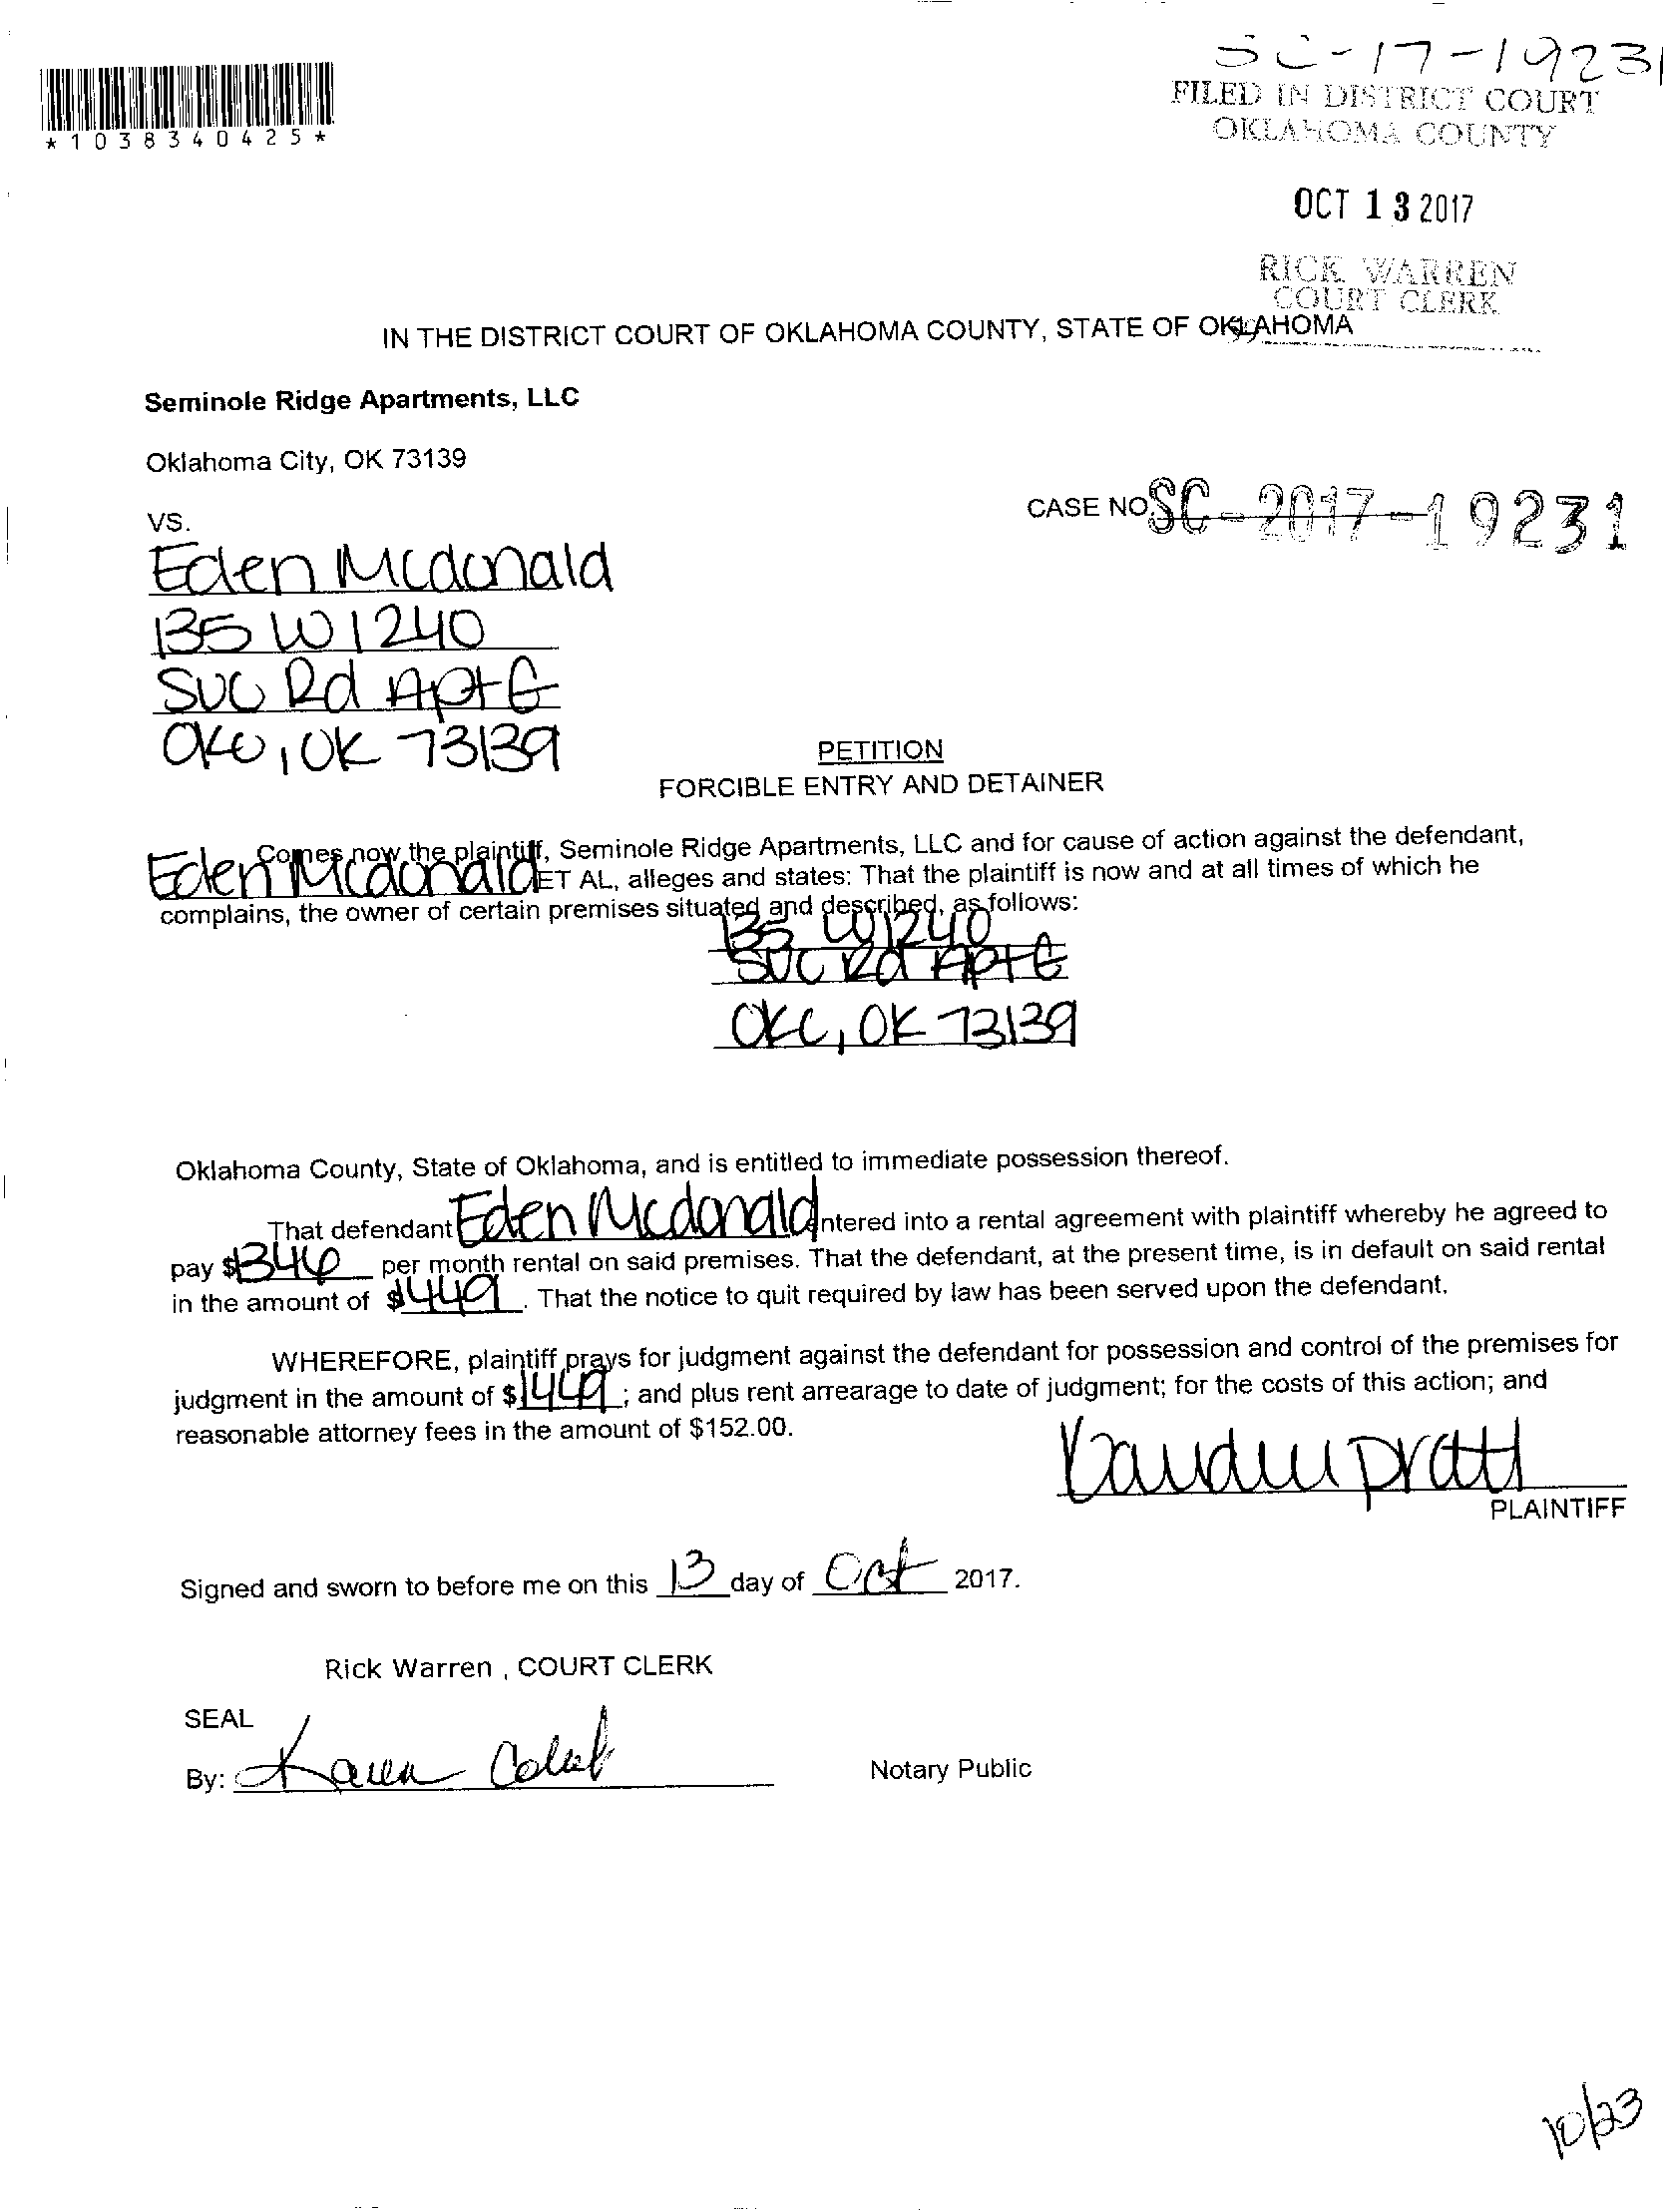 SC-17-19231
FILED IN DISTRICT COURT
OKLAHOMA COUNTY
*1038340425*
OCT 13 2017
RICK WARREN
COURT CLERK
IN THE DISTRICT COURT OF OKLAHOMA COUNTY, STATE OF OKLAHOMA
Seminole Ridge Apartments, LLC
Oklahoma City, OK 73139
CASE NO. SC-2017-19231
VS.
Eden Mcdonald
135 W I240
SVC Rd Apt G
OKC, OK 73139
PETITION
FORCIBLE ENTRY AND DETAINER
Comes now the plaintiff, Seminole Ridge Apartments, LLC and for cause of action against the defendant,
Eden Mcdonald ET AL, alleges and states: That the plaintiff is now and at all times of which he
complains, the owner of certain premises situated and described, as follows:
135 W I240
SVC Rd Apt G
OKC, OK 73139
Oklahoma County, State of Oklahoma, and is entitled to immediate possession thereof.
That defendant Eden Mcdonald entered into a rental agreement with plaintiff whereby he agreed to
pay $ per month rental on said premises. That the defendant, at the present time, is in default on said rental
in the amount of $449. That the notice to quit required by law has been served upon the defendant.
WHEREFORE, plaintiff prays for judgment against the defendant for possession and control of the premises for
judgment in the amount of $; and plus rent arrearage to date of judgment; for the costs of this action; and
reasonable attorney fees in the amount of $152.00.
Pratt
PLAINTIFF
Signed and sworn to before me on this 13 day of Oct 2017.
Rick Warren , COURT CLERK
SEAL
By: Karen
Notary Public
10/23